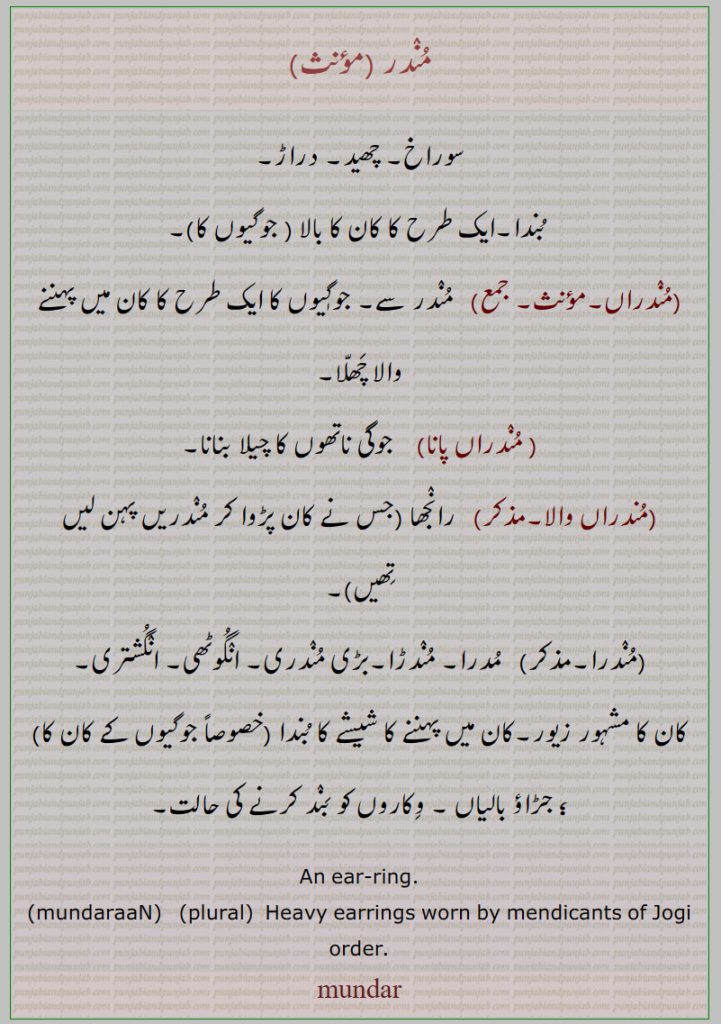 مُنْدر (مؤنث)
سوراخ۔ چھید۔ دراڑ۔
بُندا۔ایک طرح کا کان کا بالا ( جوگیوں کا)۔
(مُنْدراں۔مؤنث۔ جمع) مُنْدر سے۔ جوگیوں کا ایک طرح کا کان میں پہننے
والا چَھلّا۔
( مُنْدراں پانا) جوگی ناتھوں کا چیلا بنانا۔
(مُندراں والا۔مذکر) رانْجھا (جس نے کان پڑوا کر مُنْدریں پہن لیں
تِھیں)۔
(مُنْدرا۔مذکر) مُدرا۔ مُنْدڑا۔بڑی مُنْدری۔ انْگُوٹھی۔ انْگُشتری۔
کان کا مشہور زیور۔کان میں پہننے کا شیشے کا بُندا (خصوصاً جوگیوں کے کان کا)
؛ جڑاؤ بالیاں ۔ وِکاروں کو بَنْد کرنے کی حالت۔
An ear-ring.
(mundaraaN) (plural) Heavy earrings worn by mendicants of Jogi
order.
mundar